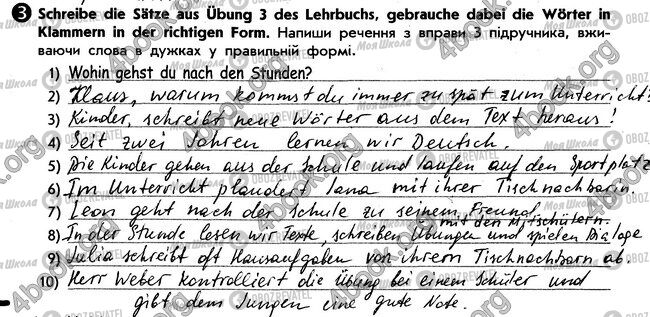 3 Schreibe die Sätze aus Übung 3 des Lehrbuchs, gebrauche dabei die Wörter in
Klammern in der richtigen Form. Напиши речення з вправи 3 підручника, вжи-
ваючи слова в дужках у правильній формі.
1) Wohin gehst du nach den Stunden?
2) Klaus, warum kommst du immer zu spät zum Unterricht?
3) Kinder, schreibt neue Wörter aus dem Text heraus!
4) Seit zwei Jahren lernen wir Deutsch.
5) Die Kinder gehen aus der Schule und laufen auf den Sportplatz
6) Im Unterricht plaudert Jana mit ihrer Tischnachbarin.
7) Leon geht nach der Schule zu seinem Freund.
mit den Mitschülern.
8) In der Stunde lesen wir Texte, schreiben Übungen und spielen Dialoge
9) Julia schreibt oft Hausaufgaben von ihrem Tischnachbarn ab.
10) Herr Weber kontrolliert die Übung bei einem Schüler und
gibt dem Jungen eine gute Note.